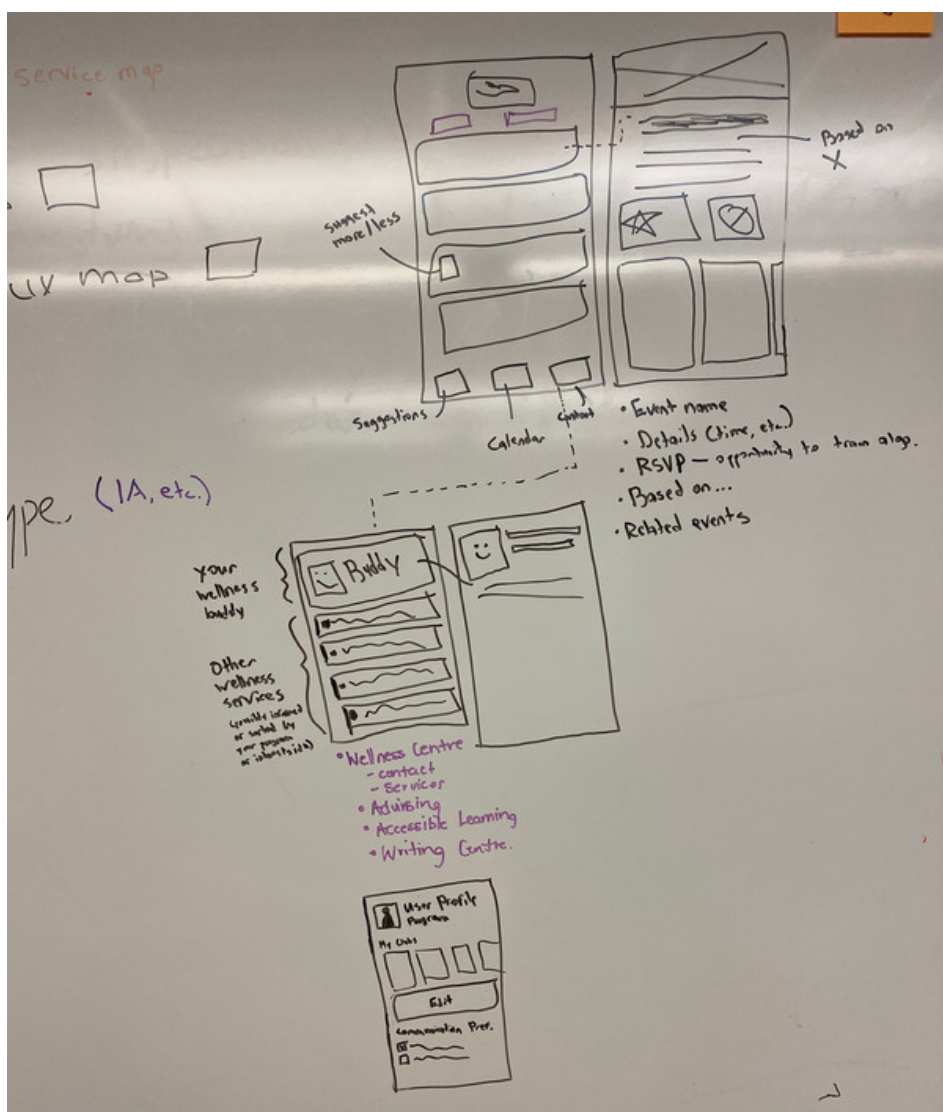 service map
ux map
Suggest
more/less
Based on
X
Suggestions
Calendar
Contact
• Event name
• Details (time, etc.)
• RSVP — opportunity to train algo.
• Based on...
• Related events
ype (IA, etc.)
your
wellness
buddy
Buddy
Other
wellness
services
or sorted by
your program
• Wellness Centre
- contact
- services
• Advising
• Accessible Learning
• Writing Centre.
User Profile
Program
My Clubs
Edit
Communication Pref.